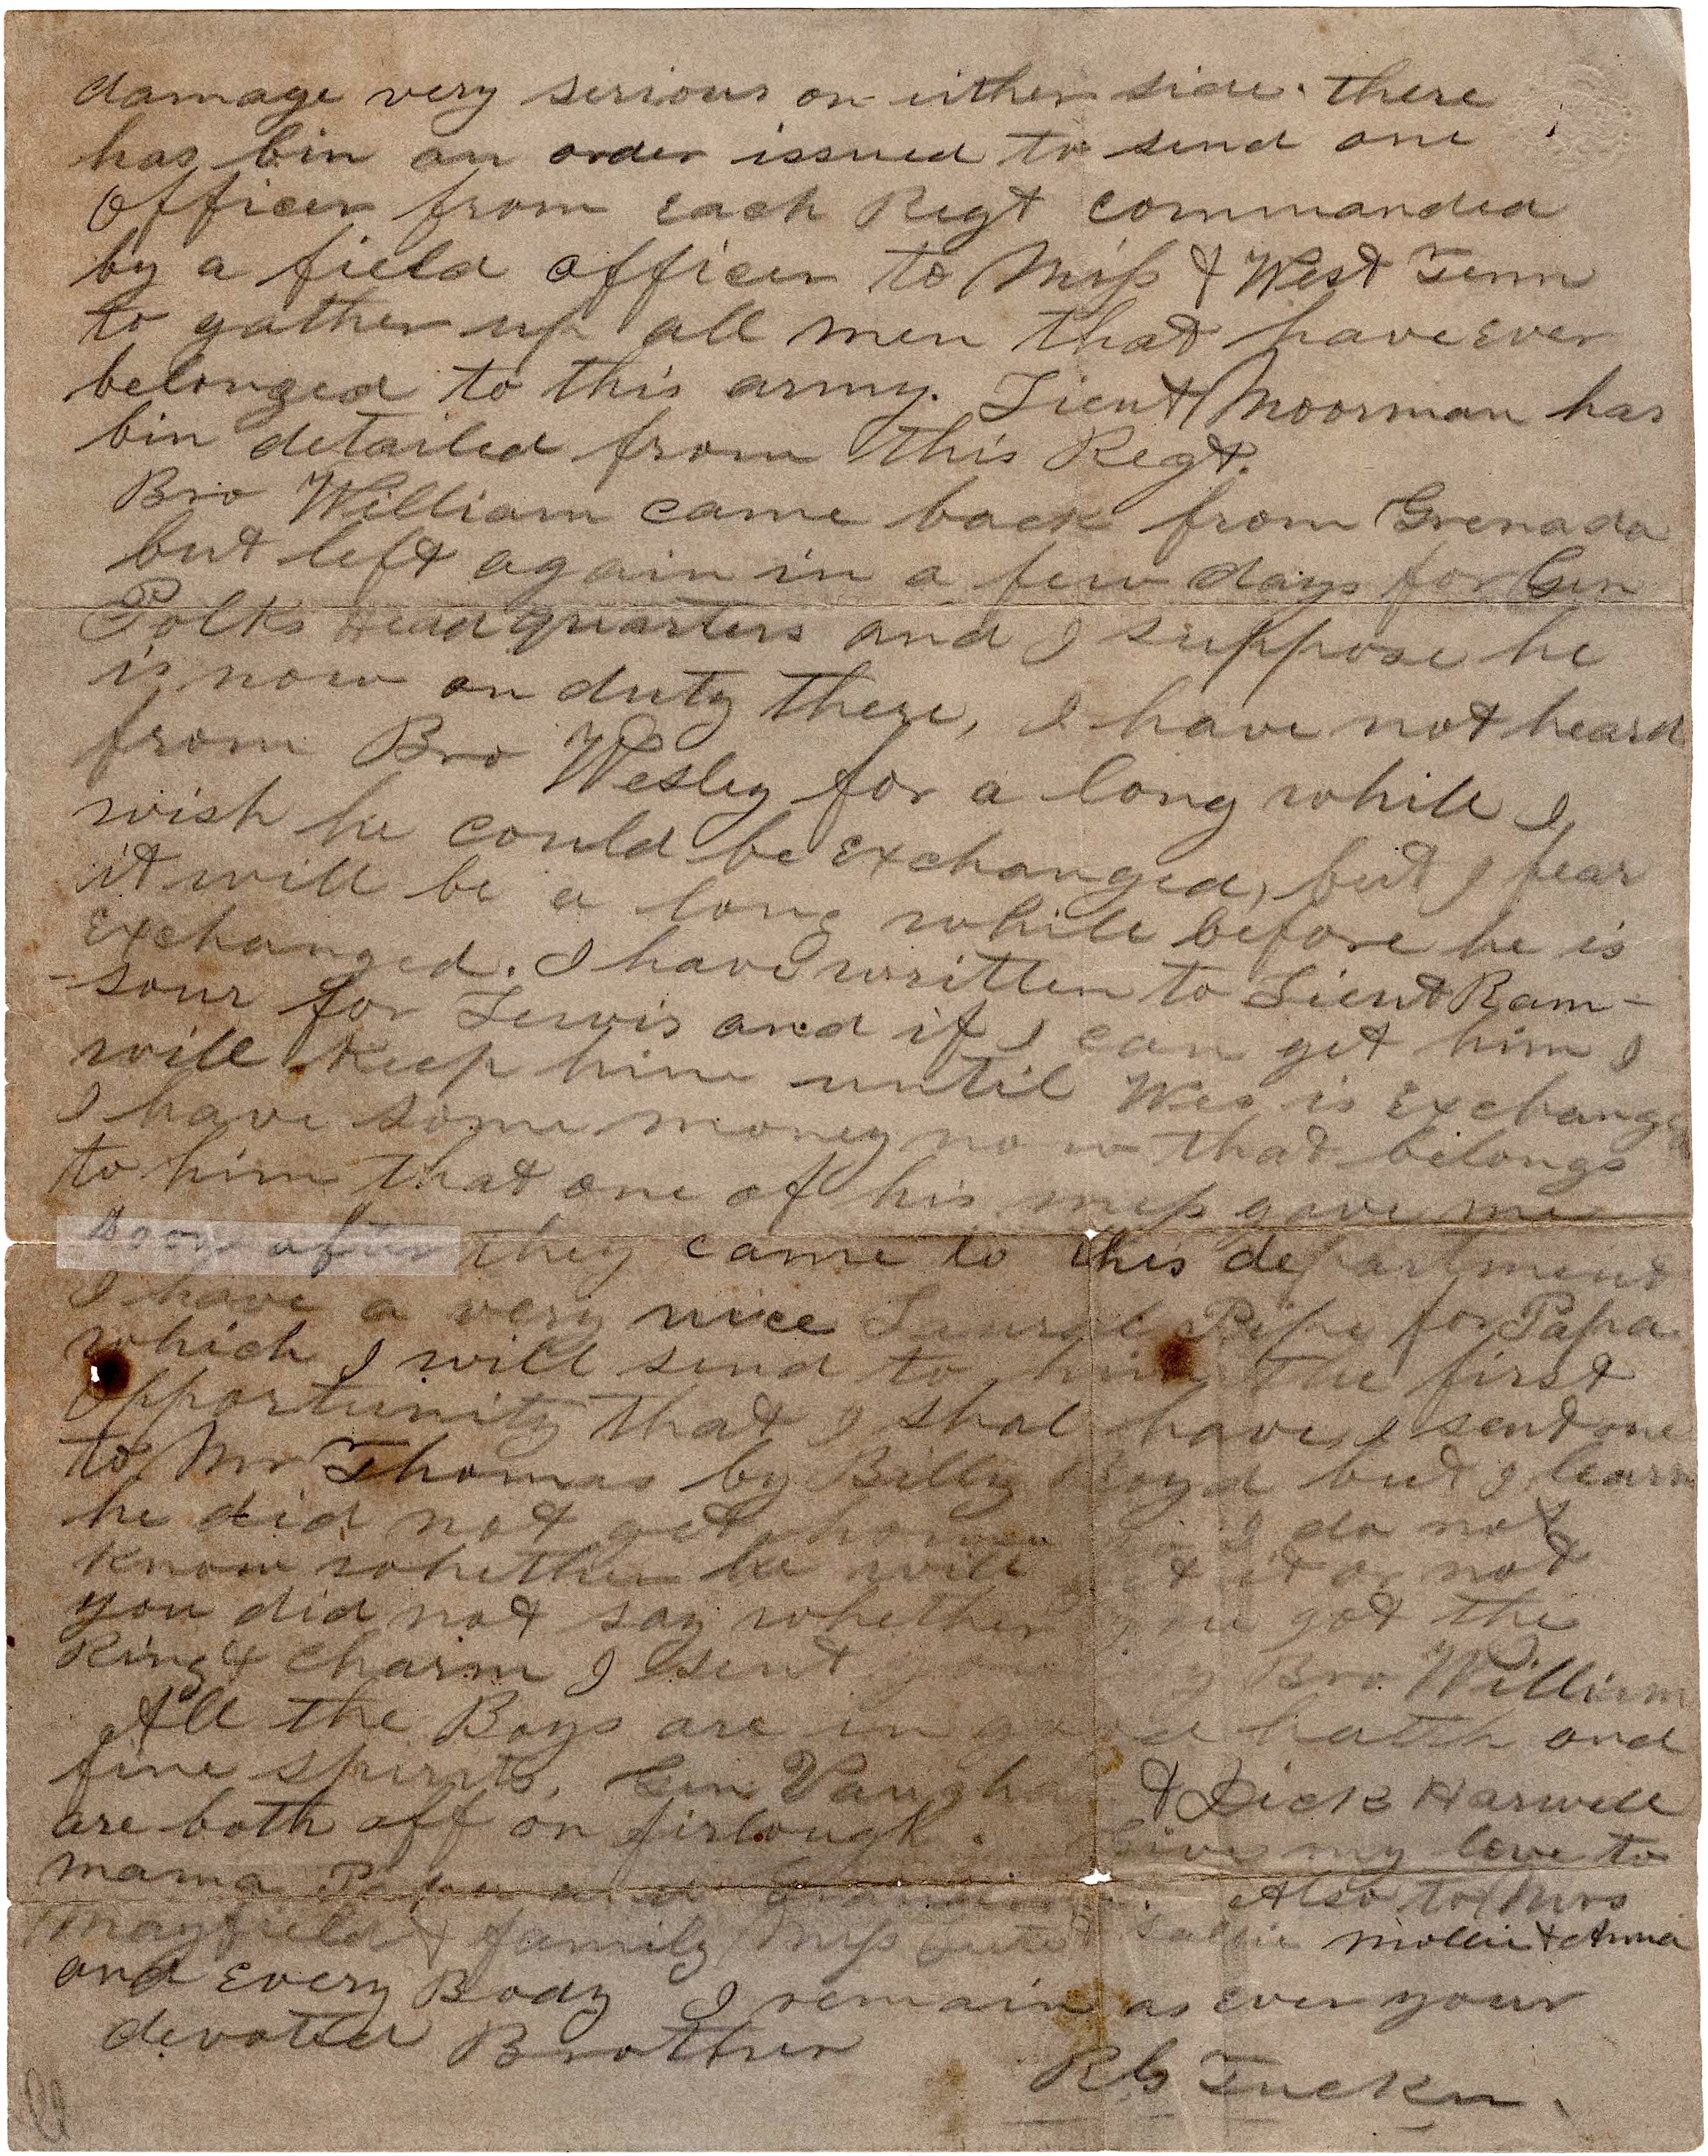 damage very serious on either side. there
has bin an order issued to send one
officer from each Regt commanded
by a field officer to Miss & West Tenn
to gather up all men that have ever
belonged to this army. Lieut Moorman has
bin detailed from this Regt.
Bro William came back from Grenada
but left again in a few days for Gen
Polks Head quarters and I suppose he
is now on duty there, I have not heard
from Bro Wesley for a long while I
wish he could be Exchanged, but I fear
it will be a long while before he is
Exchanged. I have written to Lieut Ram-
-sour for Lewis and if I can get him I
will keep him until Wes is Exchanged
I have some money now that belongs
to him that one of his mess gave me
soon after they came to this department
I have a very nice Laurel Pipe for Papa
which I will send to him the first
opportunity that I shal have, I sent one
to Mr Thomas by Billy Boyd but I learn
he did not get home I do not
know whether he will get it or not
you did not say whether you got the
Ring & charm I sent you by Bro William
All the Boys are in good halth and
fine spirits. Gen Vaughan & Dick Harwell
are both off on firlough. Give my love to
mama Papa and Also to Mrs
Mayfield & family Miss Sallie Mollie & Anna
and Every Body I remain as ever your
devoted Brother
R G Tucker